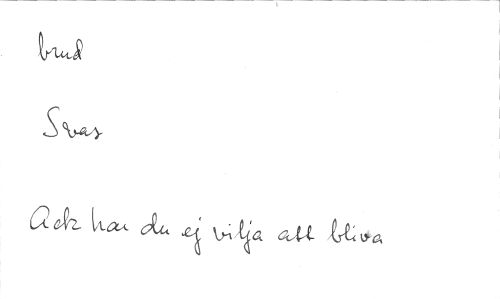 brud
Svar
Ack har du ej vilja att bliva